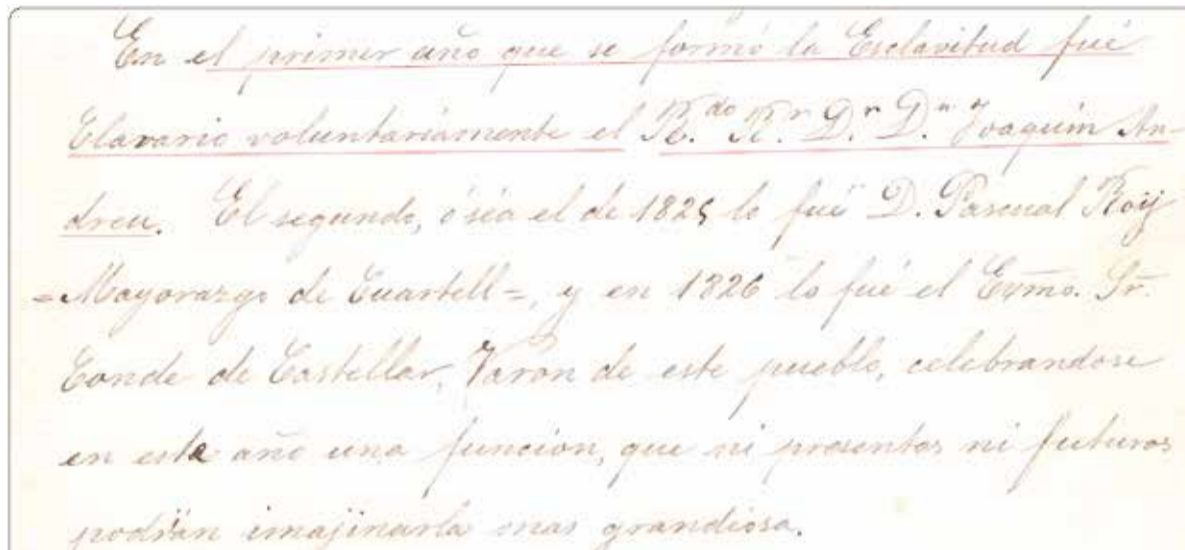 En el primer año que se formó la Esclavitud fué
Clavario voluntariamente el R.do R.r D.r D.n Joaquin An-
dreu. El segundo, ó sea el de 1825 lo fué D. Pascual Roij
=Mayorazgo de Cuartell=, y en 1826 lo fué el Exmo. Sr.
Conde de Castellar, Varon de este pueblo, celebrandose
en este año una funcion, que ni presentes ni futuros
podrán imajinarla mas grandiosa.